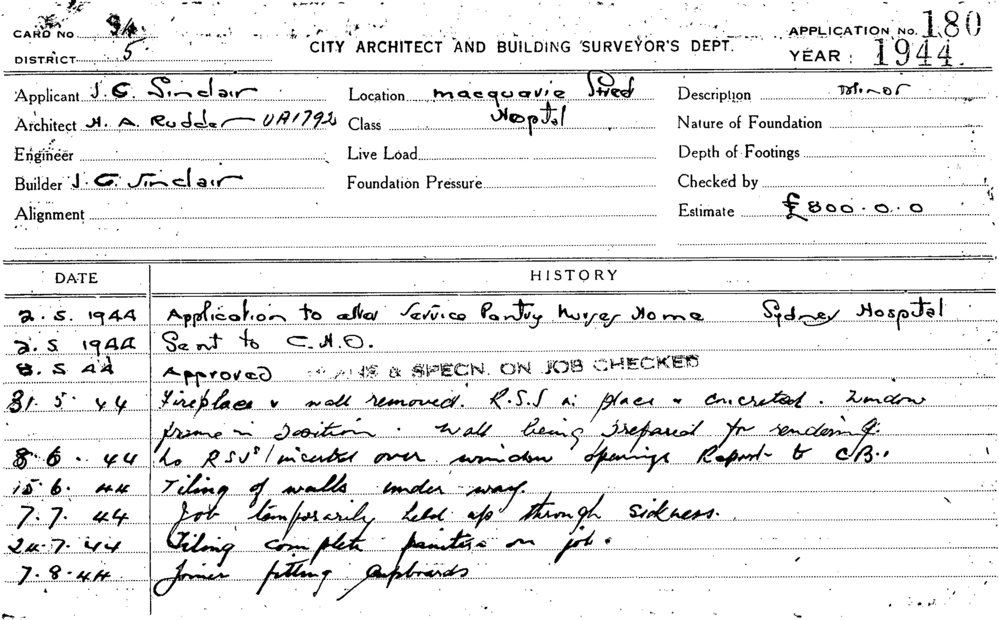 CARD No 94
DISTRICT 5
CITY ARCHITECT AND BUILDING SURVEYOR'S DEPT.
APPLICATION No. 180
YEAR : 1944
Applicant J. G. Sinclair
Location Macquarie Street
Description Minor
Architect H. A. Rudder UA1792
Class Hospital
Nature of Foundation
Engineer
Live Load
Depth of Footings
Builder J. G. Sinclair
Foundation Pressure
Checked by
Alignment
Estimate £800.0.0
DATE HISTORY
2.5.1944 Application to alter Service Pantry Nurses Home Sydney Hospital
2.5.1944 Sent to C.H.O.
8.5.44 Approved PLANS & SPECN. ON JOB CHECKED
31.5.44 Fireplace & wall removed. R.S.J in place & concreted. Window
frame in position. Wall being prepared for rendering.
8.6.44 RSJs inserted over window openings Report to C.B.
15.6.44 Tiling of walls under way.
7.7.44 Job temporarily held up through sickness.
24.7.44 Tiling complete painters on job.
7.8.44 Joiner fitting cupboards